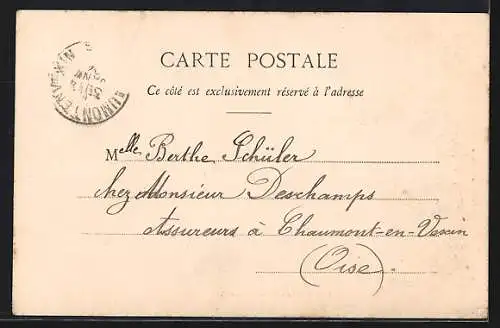 CARTE POSTALE
Ce côté est exclusivement réservé à l'adresse
Melle Berthe Schüler
chez Monsieur Deschamps
Assureurs à Chaumont-en-Vexin
(Oise).
UMONT EN VEXIN